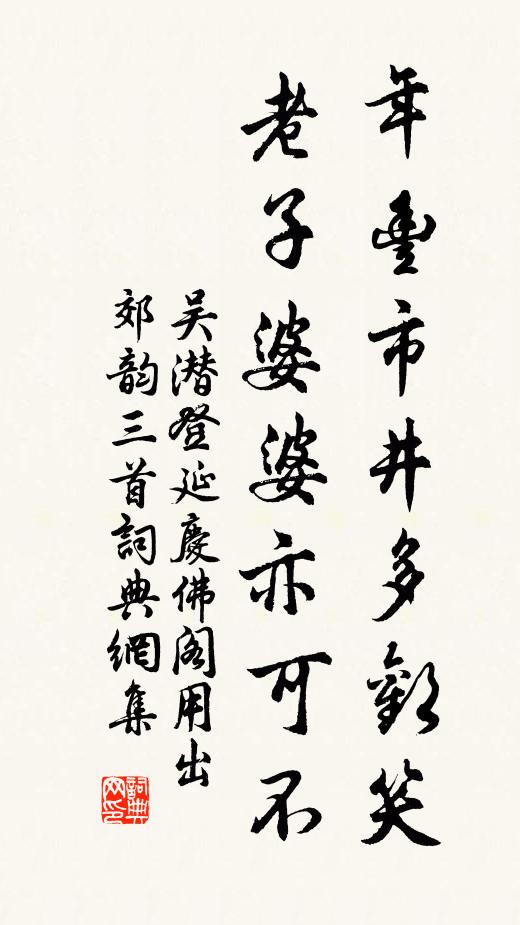 年豐市井多歡笑
老子婆婆亦可不
吴潜登延慶佛閣用出
郊韵三首詞典網集
詞典
网印